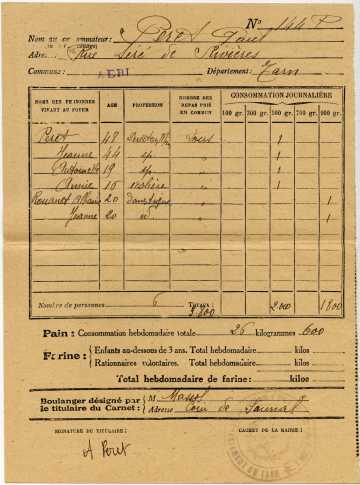 N° 144 P
Nom du consommateur: Peret Paul
Adresse: Rue Séré de Rivières
Commune: ALBI Département: Tarn
NOMS DES PERSONNES VIVANT AU FOYER AGE PROFESSION NOMBRE DES REPAS PRIS EN COMMUN CONSOMMATION JOURNALIÈRE
100 gr. 300 gr. 500 gr. 700 gr. 900 gr.
Peret 48 tous 1
Jeanne 44 sp. " 1
Antoinette 19 sp. " 1
Annie 16 écolière " 1
Rouanet 20 " 1
Jeanne 20 " 1
Nombre de personnes 6 TOTAUX: 3.800 2.000 1800
Pain: Consommation hebdomadaire totale 26 kilogrammes 600
Farine: Enfants au-dessous de 3 ans. Total hebdomadaire kilos
Rationnaires volontaires. Total hebdomadaire kilos
Total hebdomadaire de farine: kilos
Boulanger désigné par le titulaire du Carnet: M. Massol
Adresse
SIGNATURE DU TITULAIRE: CACHET DE LA MAIRIE:
A Peret